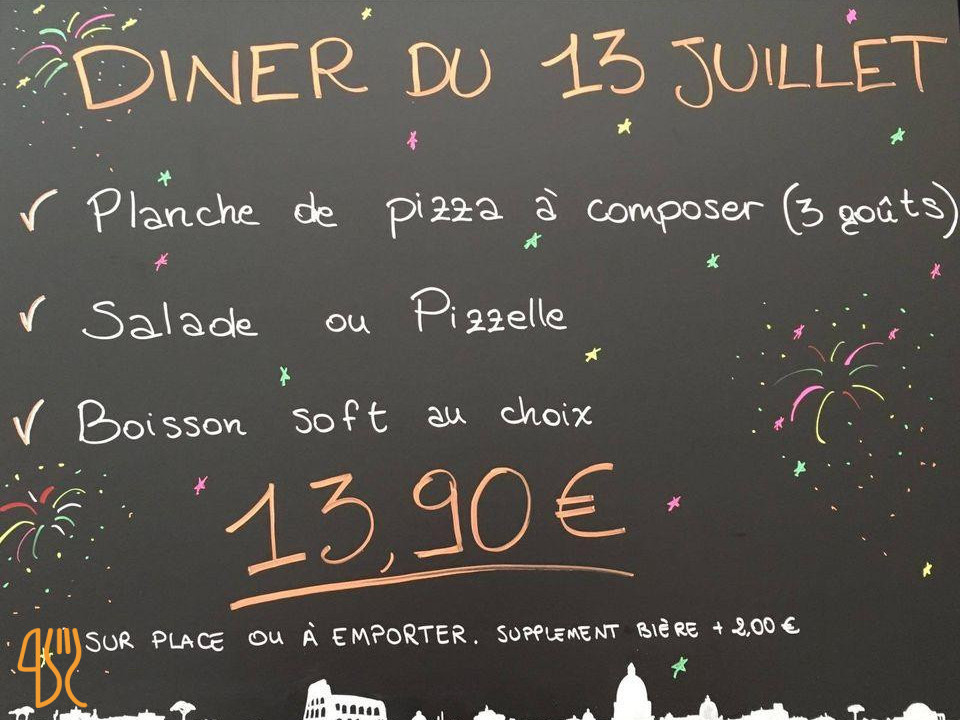 DINER DU 13 JUILLET
Planche de pizza à composer (3 goûts)
Salade ou Pizzelle
Boisson soft au choix
13,90 €
SUR PLACE OU À EMPORTER. SUPPLEMENT BIÈRE + 2,00 €